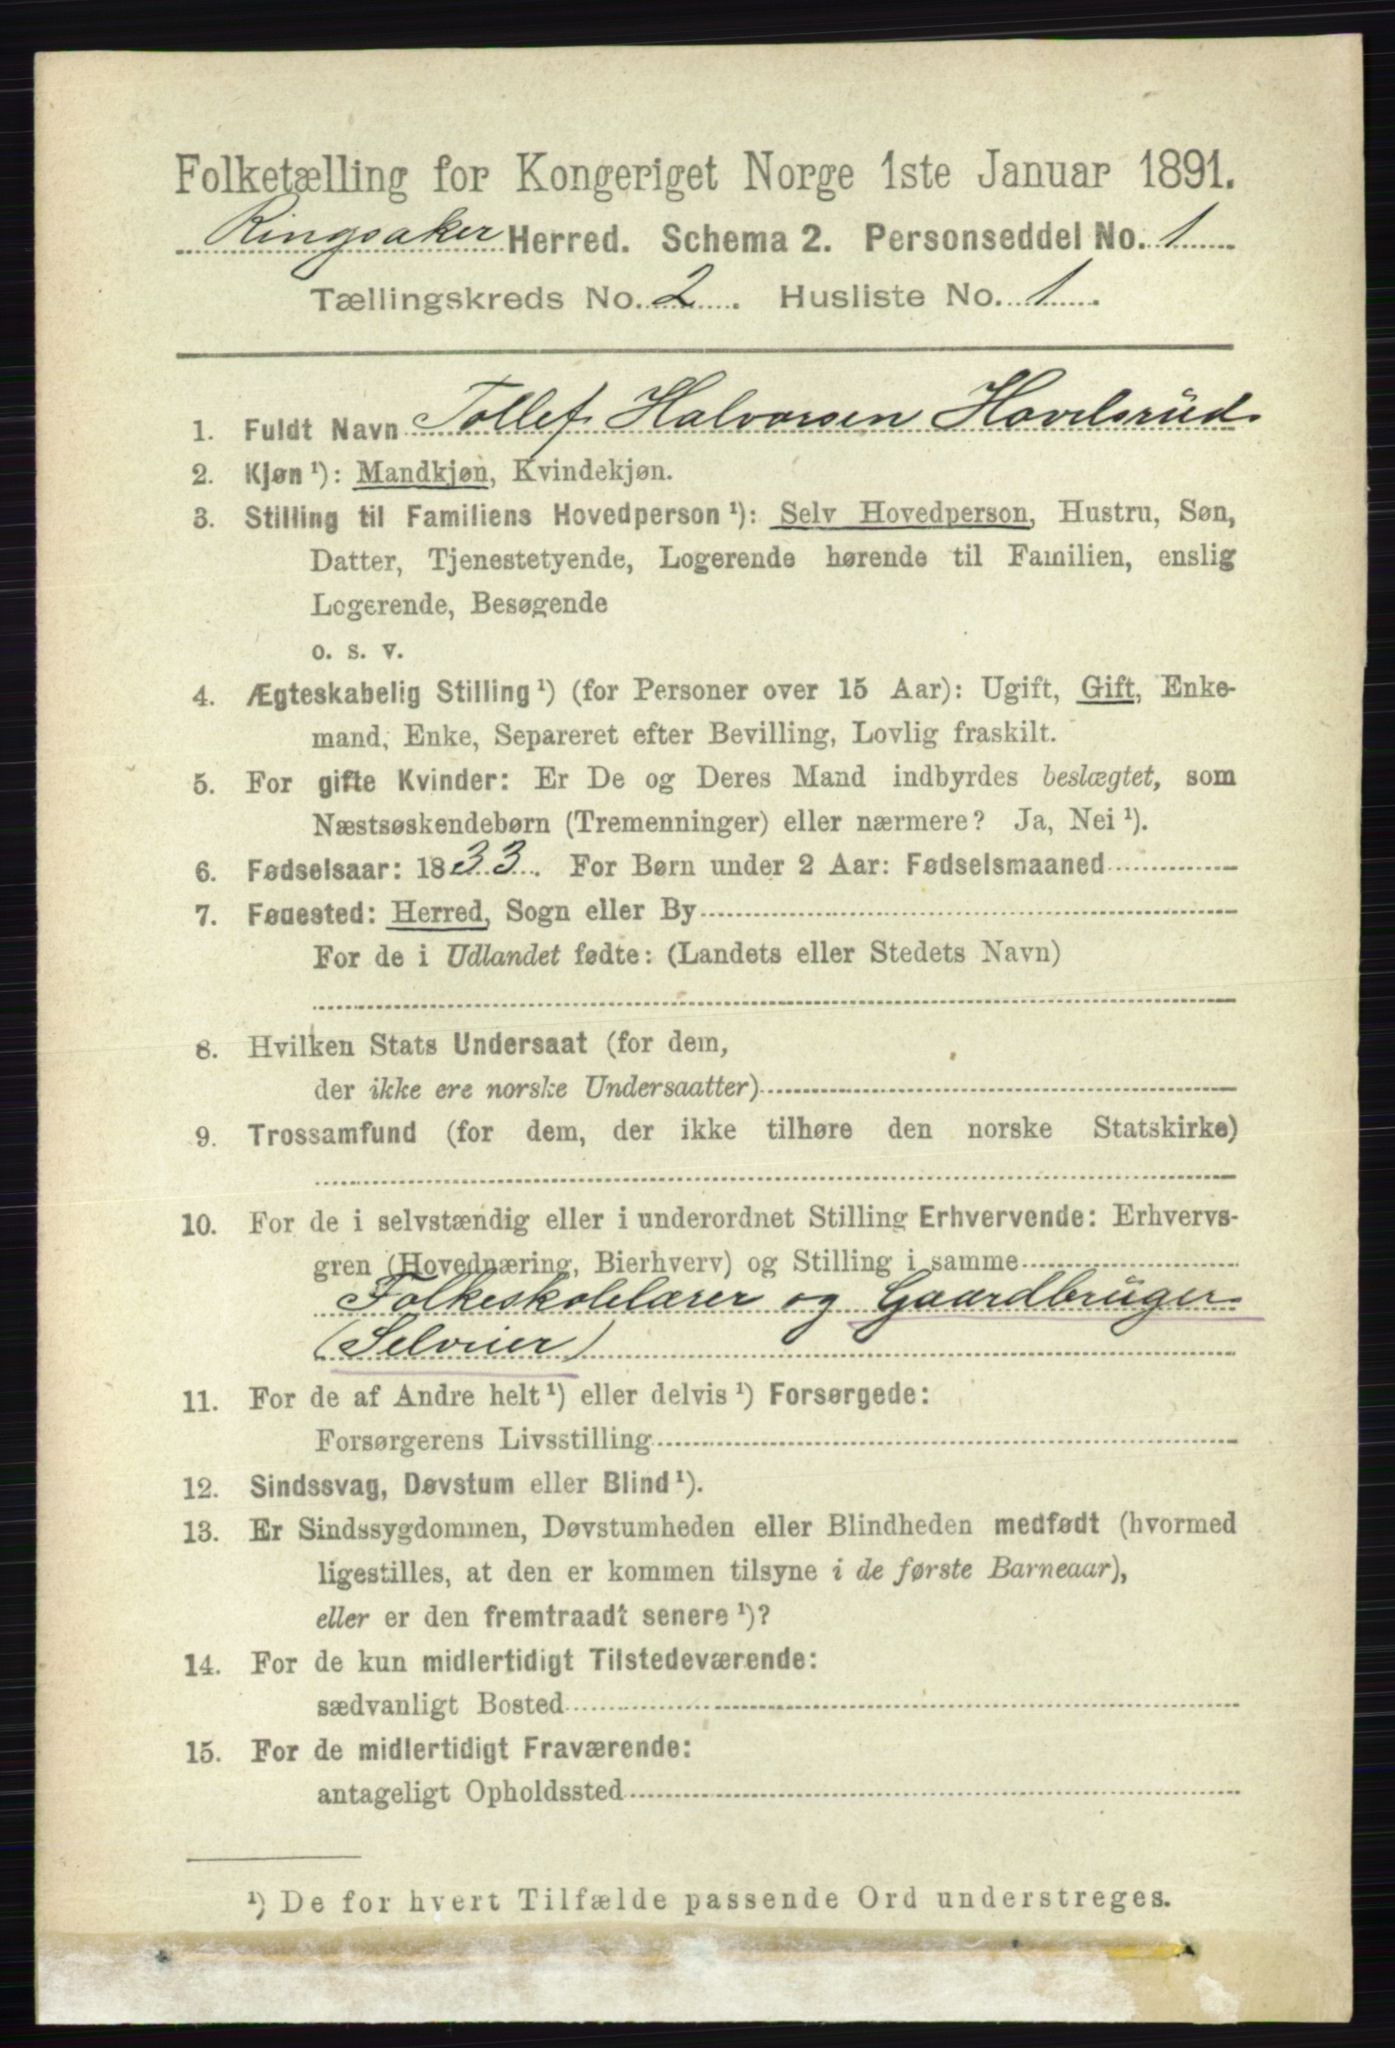 Folketælling for Kongeriget Norge 1ste Januar 1891.
Ringsaker Herred. Schema 2. Personseddel No. 1
Tællingskreds No. 2. Husliste No. 1.
1. Fuldt Navn Tollef Halvorsen Hovelsrud
2. Kjøn ¹): Mandkjøn, Kvindekjøn.
3. Stilling til Familiens Hovedperson ¹): Selv Hovedperson, Hustru, Søn,
Datter, Tjenestetyende, Logerende hørende til Familien, enslig
Logerende, Besøgende
o. s. v.
4. Ægteskabelig Stilling ¹) (for Personer over 15 Aar): Ugift, Gift, Enke-
mand, Enke, Separeret efter Bevilling, Lovlig fraskilt.
5. For gifte Kvinder: Er De og Deres Mand indbyrdes beslægtet, som
Næstsøskendebørn (Tremenninger) eller nærmere? Ja, Nei ¹).
6. Fødselsaar: 1833. For Børn under 2 Aar: Fødselsmaaned
7. Fødested: Herred, Sogn eller By
For de i Udlandet fødte: (Landets eller Stedets Navn)
8. Hvilken Stats Undersaat (for dem,
der ikke ere norske Undersaatter)
9. Trossamfund (for dem, der ikke tilhøre den norske Statskirke)
10. For de i selvstændig eller i underordnet Stilling Erhvervende: Erhvervs-
gren (Hovednæring, Bierhverv) og Stilling i samme
Folkeskolelærer og Gaardbruger
(Selveier)
11. For de af Andre helt ¹) eller delvis ¹) Forsørgede:
Forsørgerens Livsstilling
12. Sindssvag, Døvstum eller Blind ¹).
13. Er Sindssygdommen, Døvstumheden eller Blindheden medfødt (hvormed
ligestilles, at den er kommen tilsyne i de første Barneaar),
eller er den fremtraadt senere ¹)?
14. For de kun midlertidigt Tilstedeværende:
sædvanligt Bosted
15. For de midlertidigt Fraværende:
antageligt Opholdssted
¹) De for hvert Tilfælde passende Ord understreges.